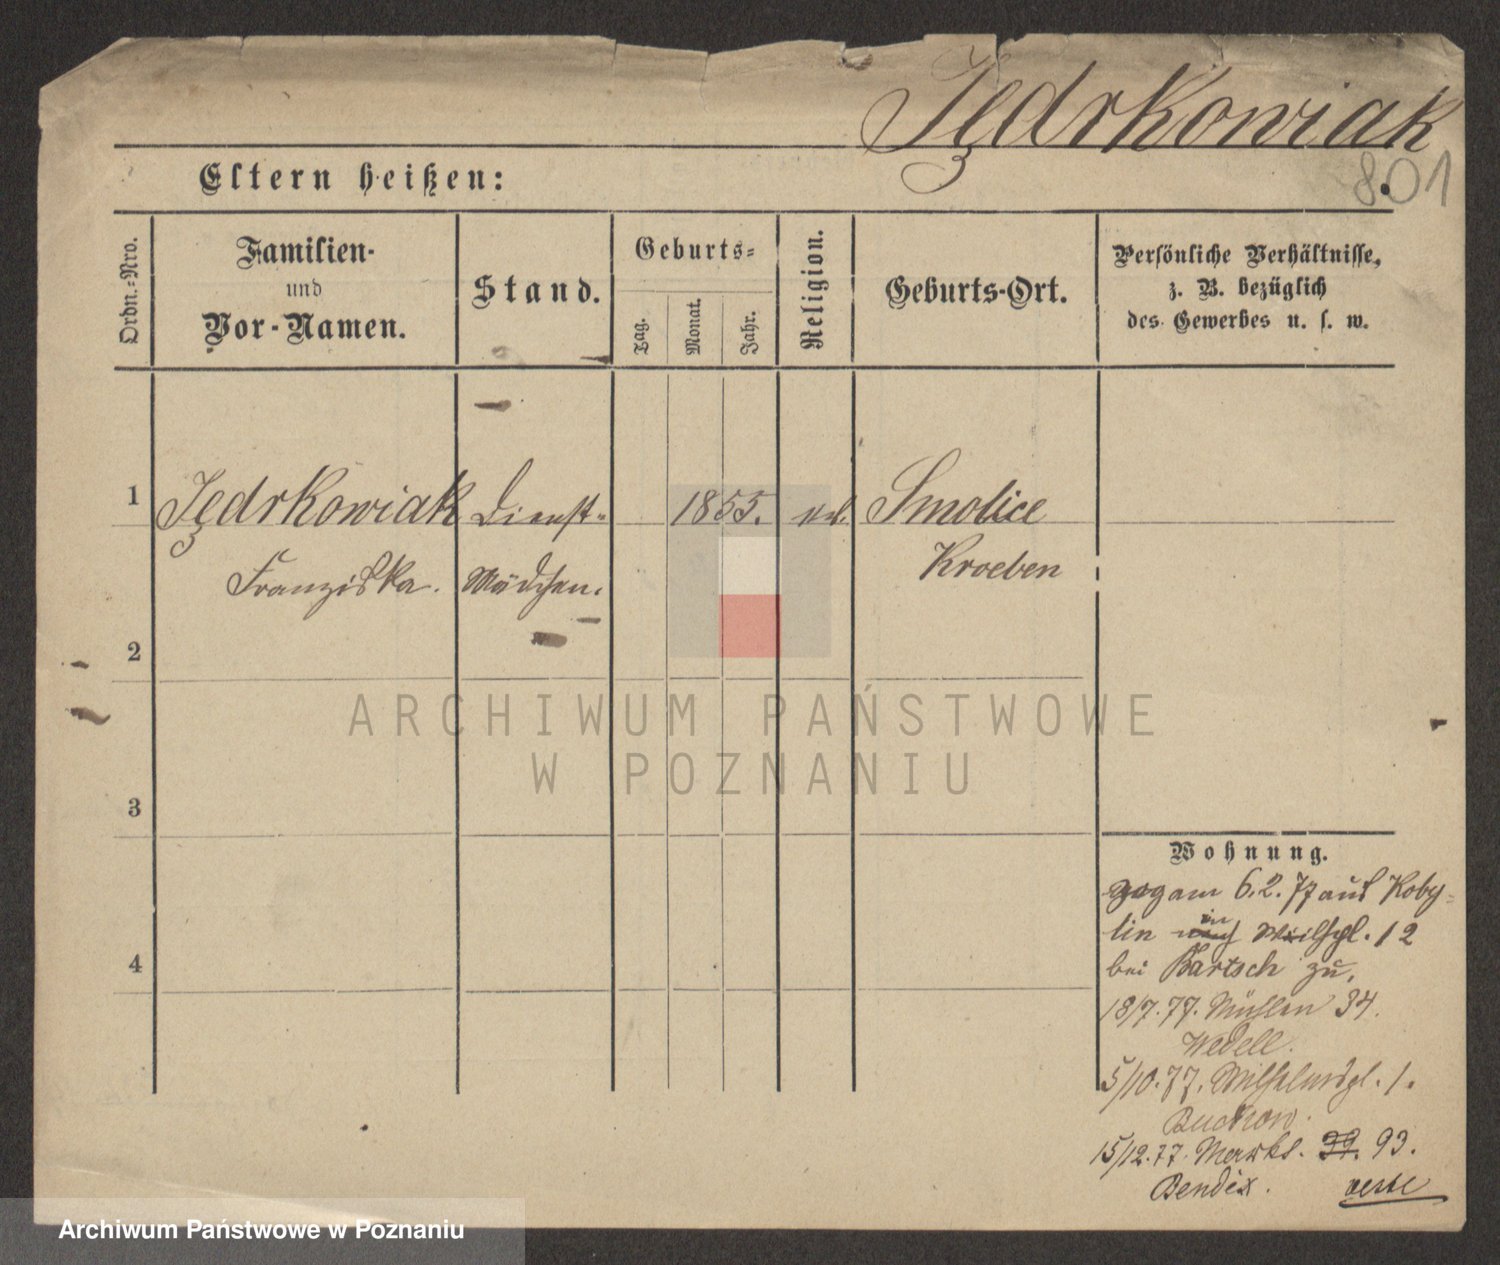 Jędrkowiak
801
Eltern heißen:
Ordn.-Nro.
Familien-
und
Vor-Namen.
Stand.
Geburts-
Tag.
Monat.
Jahr.
Religion.
Geburts-Ort.
Persönliche Verhältnisse,
z. B. bezüglich
des Gewerbes u. s. w.
1
Jędrkowiak
Dienst-
1855.
Smolice
Franziska.
Mädchen.
Kroeben
2
ARCHIWUM PAŃSTWOWE
W POZNANIU
3
Wohnung.
zog am 6.2.77 aus Koby-
lin in Wilhpl. 12
bei Bartsch zu,
4
18/7.77. Mühlen 34.
Wedell.
5/10.77. Wilhelmspl. 1.
Buckow.
15/12.77. Markt. 39. 93.
Bendix.
Archiwum Państwowe w Poznaniu